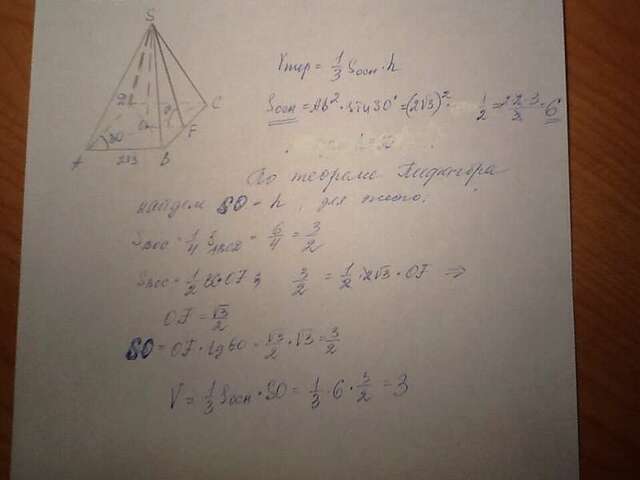 S
2√3
C
O
F
30
A
2√3
B
Vпир = 1/3 Sосн · h
Sосн = AB² · sin 30° = (2√3)² · 1/2 = 2·2·3/2 = 6
По теореме Пифагора
найдем SO = h, для этого:
S BOC = 1/4 S ABCD = 6/4 = 3/2
S BOC = 1/2 BC · OF ; 3/2 = 1/2 · 2√3 · OF ⇒
OF = √3/2
SO = OF · tg 60 = √3/2 · √3 = 3/2
V = 1/3 Sосн · SO = 1/3 · 6 · 3/2 = 3